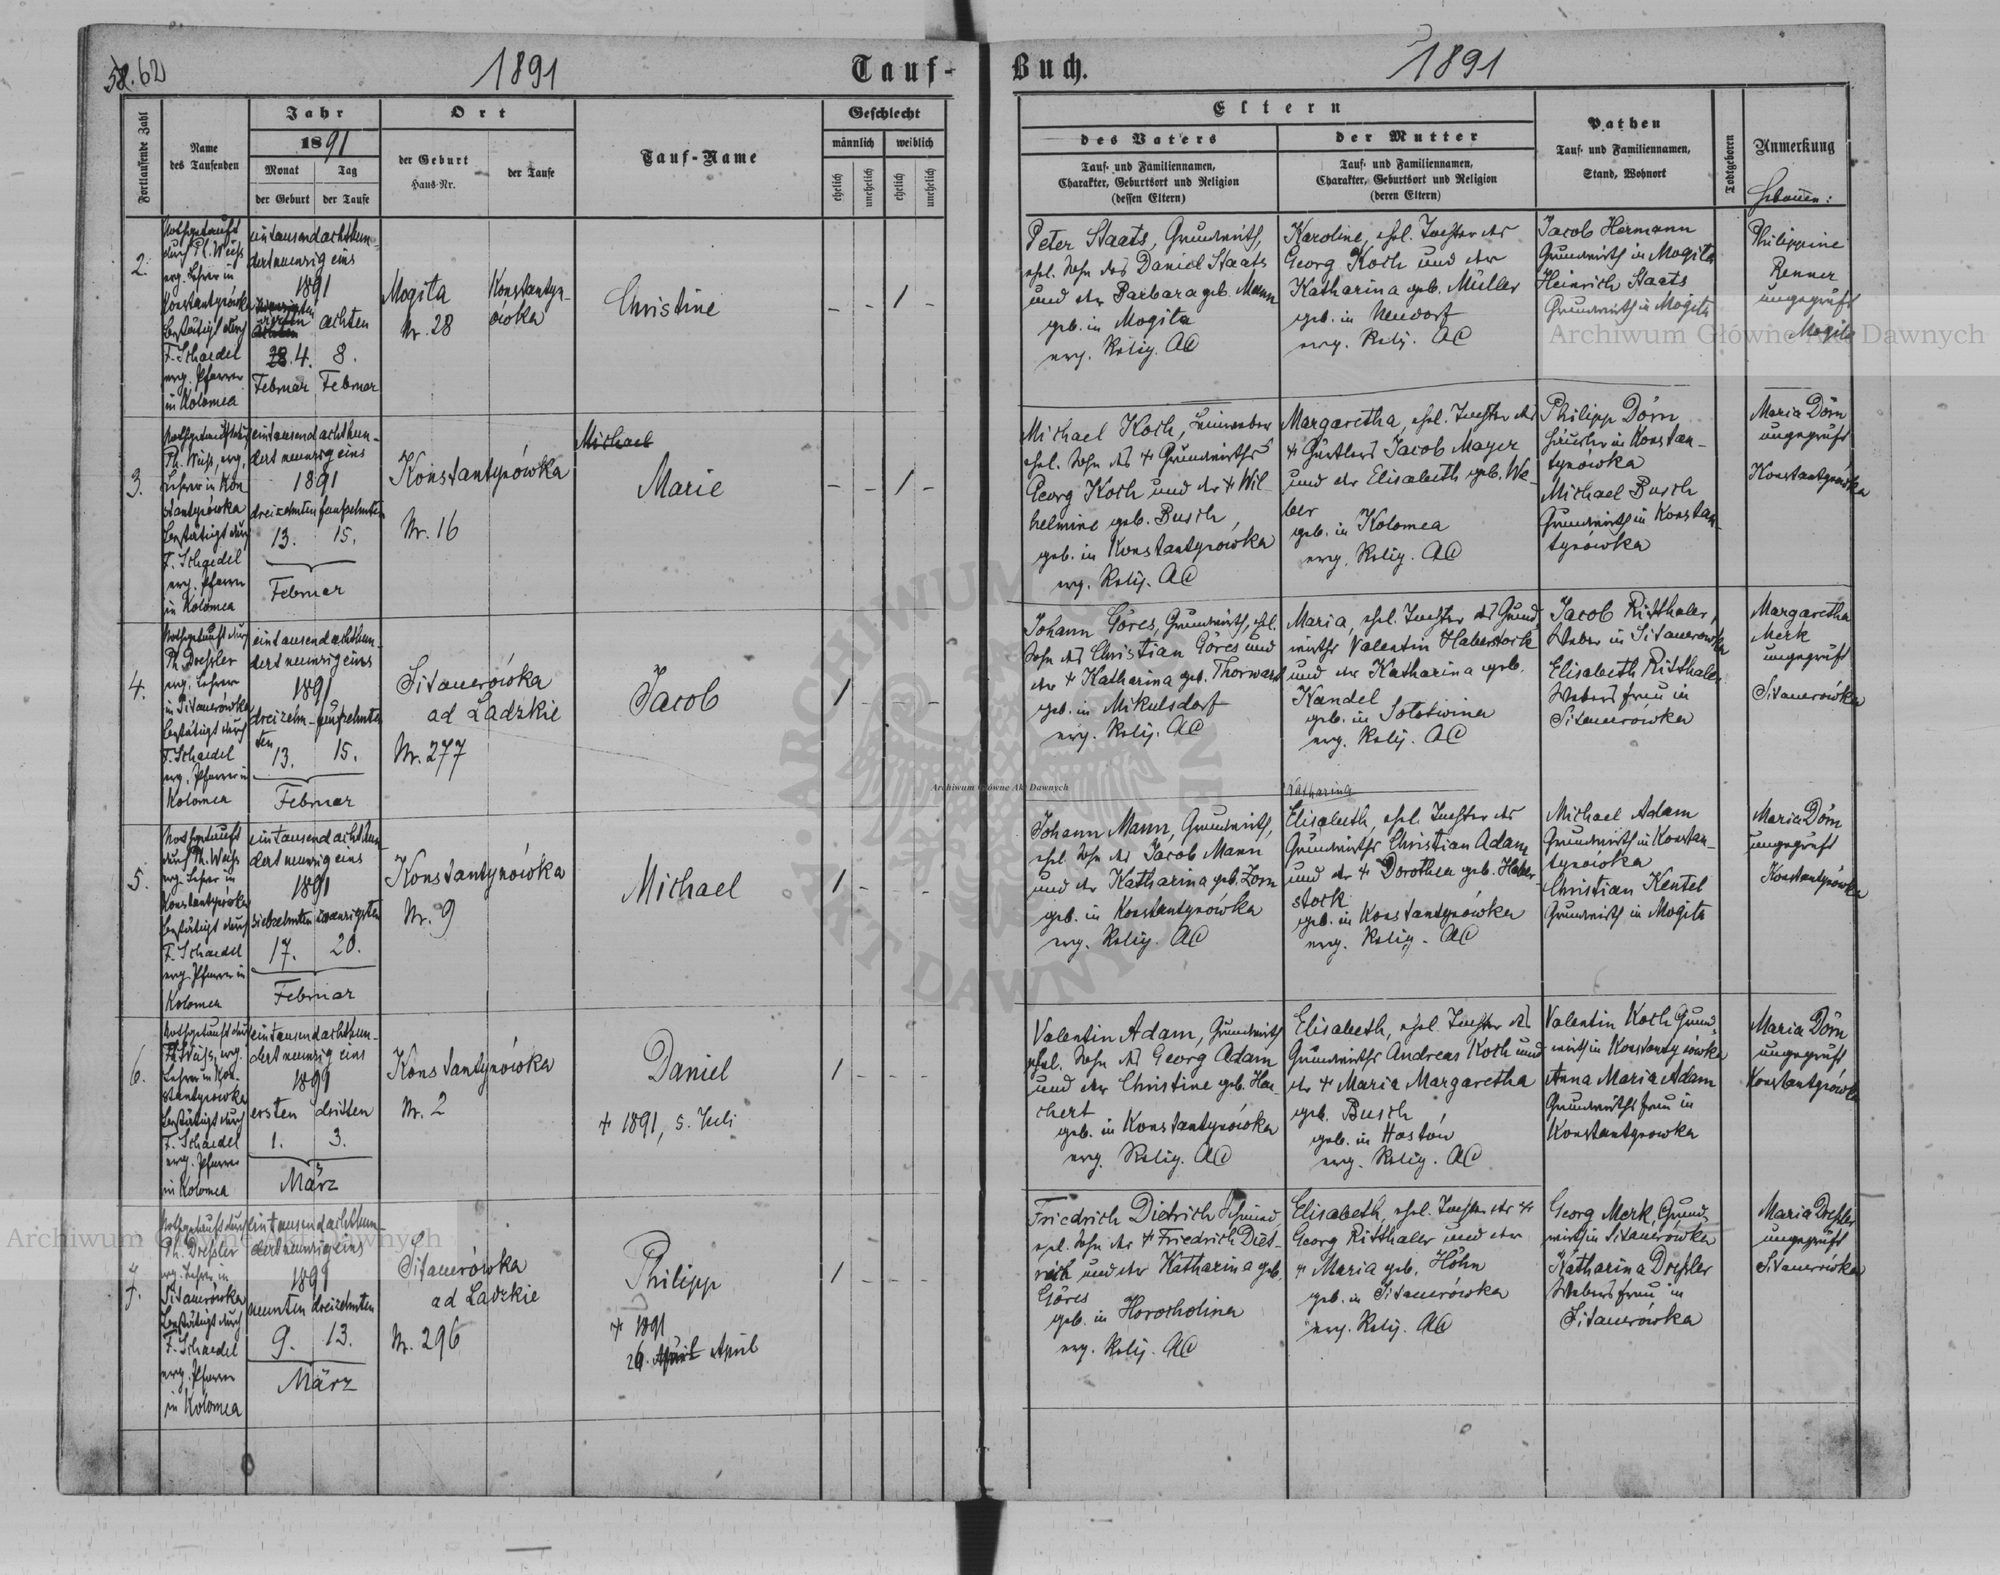 58. 62
1891
Tauf-
Buch.
1891
Fortlaufende Zahl
Name
des Taufenden
Jahr
1891
Monat
Tag
der Geburt
der Taufe
Ort
der Geburt
Haus-Nr.
der Taufe
Tauf-Name
Geschlecht
männlich
weiblich
ehelich
unehelich
ehelich
unehelich
Eltern
des Vaters
Tauf- und Familiennamen,
Charakter, Geburtsort und Religion
(dessen Eltern)
der Mutter
Tauf- und Familiennamen,
Charakter, Geburtsort und Religion
(deren Eltern)
Pathen
Tauf- und Familiennamen,
Stand, Wohnort
Todtgeboren
Anmerkung
Hebamme:
2.
Nothgetauft
durch Ph. Weiss
evg. Lehrer in
Konstantynówka
Bestätigt durch
F. Schaedel
evg. Pfarrer
in Kolomea
eintausendachthun-
dertneunzigeins
1891
vierten
achten
4.
8.
Februar
Februar
Mogila
Nr. 28
Konstantyn-
owka
Christine
- - 1 -
Peter Staats, Grundwirth,
ehel. Sohn des Daniel Staats
und der Barbara geb. Mann
geb. in Mogila
evg. Relig. AC
Karoline, ehel. Tochter des
Georg Koch und der
Katharina geb. Müller
geb. in Neudorf
evg. Relig. AC
Jacob Hermann
Grundwirth in Mogila
Heinrich Staats
Grundwirth in Mogila
Philippine
Renner
ungeprüft
Mogila
3.
Nothgetauft durch
Ph. Weiss, evg.
Lehrer in Kon
stantynówka
Bestätigt durch
F. Schaedel
evg. Pfarrer
in Kolomea
eintausendachthun-
dertneunzigeins
1891
dreizehnten fünfzehnten
13.
15.
Februar
Konstantynówka
Nr. 16
Michael
Marie
- - 1 -
Michael Koch, Leinweber
ehel. Sohn des + Grundwirths
Georg Koch und der + Wil-
helmine geb. Busch,
geb. in Konstantynowka
evg. Relig. AC
Margaretha, ehel. Tochter des
+ Gürtlers Jacob Mayer
und der Elisabeth geb. We-
ber
geb. in Kolomea
evg. Relig. AC
Philipp Dörn
Häusler in Konstan-
tynówka
Michael Busch
Grundwirth in Konstan-
tynówka
Maria Dörn
ungeprüft
Konstantynówka
4.
Nothgetauft durch
Ph. Dressler
evg. Lehrer
in Sitauerówka
Bestätigt durch
F. Schaedel
evg. Pfarrer in
Kolomea
eintausendachthun-
dertneunzigeins
1891
dreizehn- fünfzehnten
ten
13.
15.
Februar
Sitauerówka
ad Ladzkie
Nr. 277
Jacob
1 - - -
Johann Göres, Grundwirth, ehel.
Sohn des Christian Göres und
der + Katharina geb. Thorward
geb. in Mikulsdorf
evg. Relig. AC
Maria, ehel. Tochter des Grund
wirths Valentin Haberstock
und der Katharina geb.
Kandel
geb. in Solotwina
evg. Relig. AC
Jacob Ritthaler,
Weber in Sitauerowka
Elisabeth Ritthaler
Webersfrau in
Sitauerówka
Margaretha
Merk
ungeprüft
Sitauerówka
5.
Nothgetauft
durch Ph. Weiss
evg. Lehrer in
Konstantynówka
Bestätigt durch
F. Schaedel
evg. Pfarrer in
Kolomea
eintausendachthun-
dertneunzigeins
1891
siebzehnten zwanzigsten
17.
20.
Februar
Konstantynówka
Nr. 9
Michael
1 - - -
Johann Mann, Grundwirth,
ehel. Sohn des Jacob Mann
und der Katharina geb. Zorn
geb. in Konstantynówka
evg. Relig. AC
Katharina
Elisabeth, ehel. Tochter des
Grundwirths Christian Adam
und der + Dorothea geb. Haber-
stock
geb. in Konstantynówka
evg. Relig. AC
Michael Adam
Grundwirth in Konstan-
tynówka
Christian Kentel
Grundwirth in Mogila
Maria Dörn
ungeprüft
Konstantynówka
6.
Nothgetauft durch
Ph. Weiss, evg.
Lehrer in Kon-
stantynowka
Bestätigt durch
F. Schaedel
evg. Pfarrer
in Kolomea
eintausendachthun-
dertneunzigeins
1891
ersten dritten
1.
3.
März
Konstantynówka
Nr. 2
Daniel
+ 1891, 5. Juli
1 - - -
Valentin Adam, Grundwirth
ehel. Sohn des Georg Adam
und der Christine geb. Han-
chert
geb. in Konstantynówka
evg. Relig. AC
Elisabeth, ehel. Tochter des
Grundwirths Andreas Koch und
der + Maria Margaretha
geb. Busch
geb. in Hostów
evg. Relig. AC
Valentin Koch Grund-
wirth in Konstantynówka
Anna Maria Adam
Grundwirthsfrau in
Konstantynowka
Maria Dörn
ungeprüft
Konstantynówka
7.
Nothgetauft durch
Ph. Dressler
evg. Lehrer in
Sitauerówka
Bestätigt durch
F. Schaedel
evg. Pfarrer
in Kolomea
eintausendachthun-
dertneunzigeins
1891
neunten dreizehnten
9.
13.
März
Sitauerówka
ad Ladzkie
Nr. 296
Philipp
+ 1891
26. April April
1 - - -
Friedrich Dietrich Schmied,
ehel. Sohn des + Friedrich Diet-
rich und der Katharina geb.
Göres
geb. in Horocholina
evg. Relig. AC
Elisabeth, ehel. Tochter des +
Georg Ritthaler und der
+ Maria geb. Höhn
geb. in Sitauerówka
evg. Relig. AC
Georg Merk, Grund-
wirth in Sitauerówka
Katharina Dressler
Webersfrau in
Sitauerówka
Maria Dressler
ungeprüft
Sitauerówka
Archiwum Główne Akt Dawnych
Archiwum Główne Akt Dawnych
Archiwum Główne Akt Dawnych